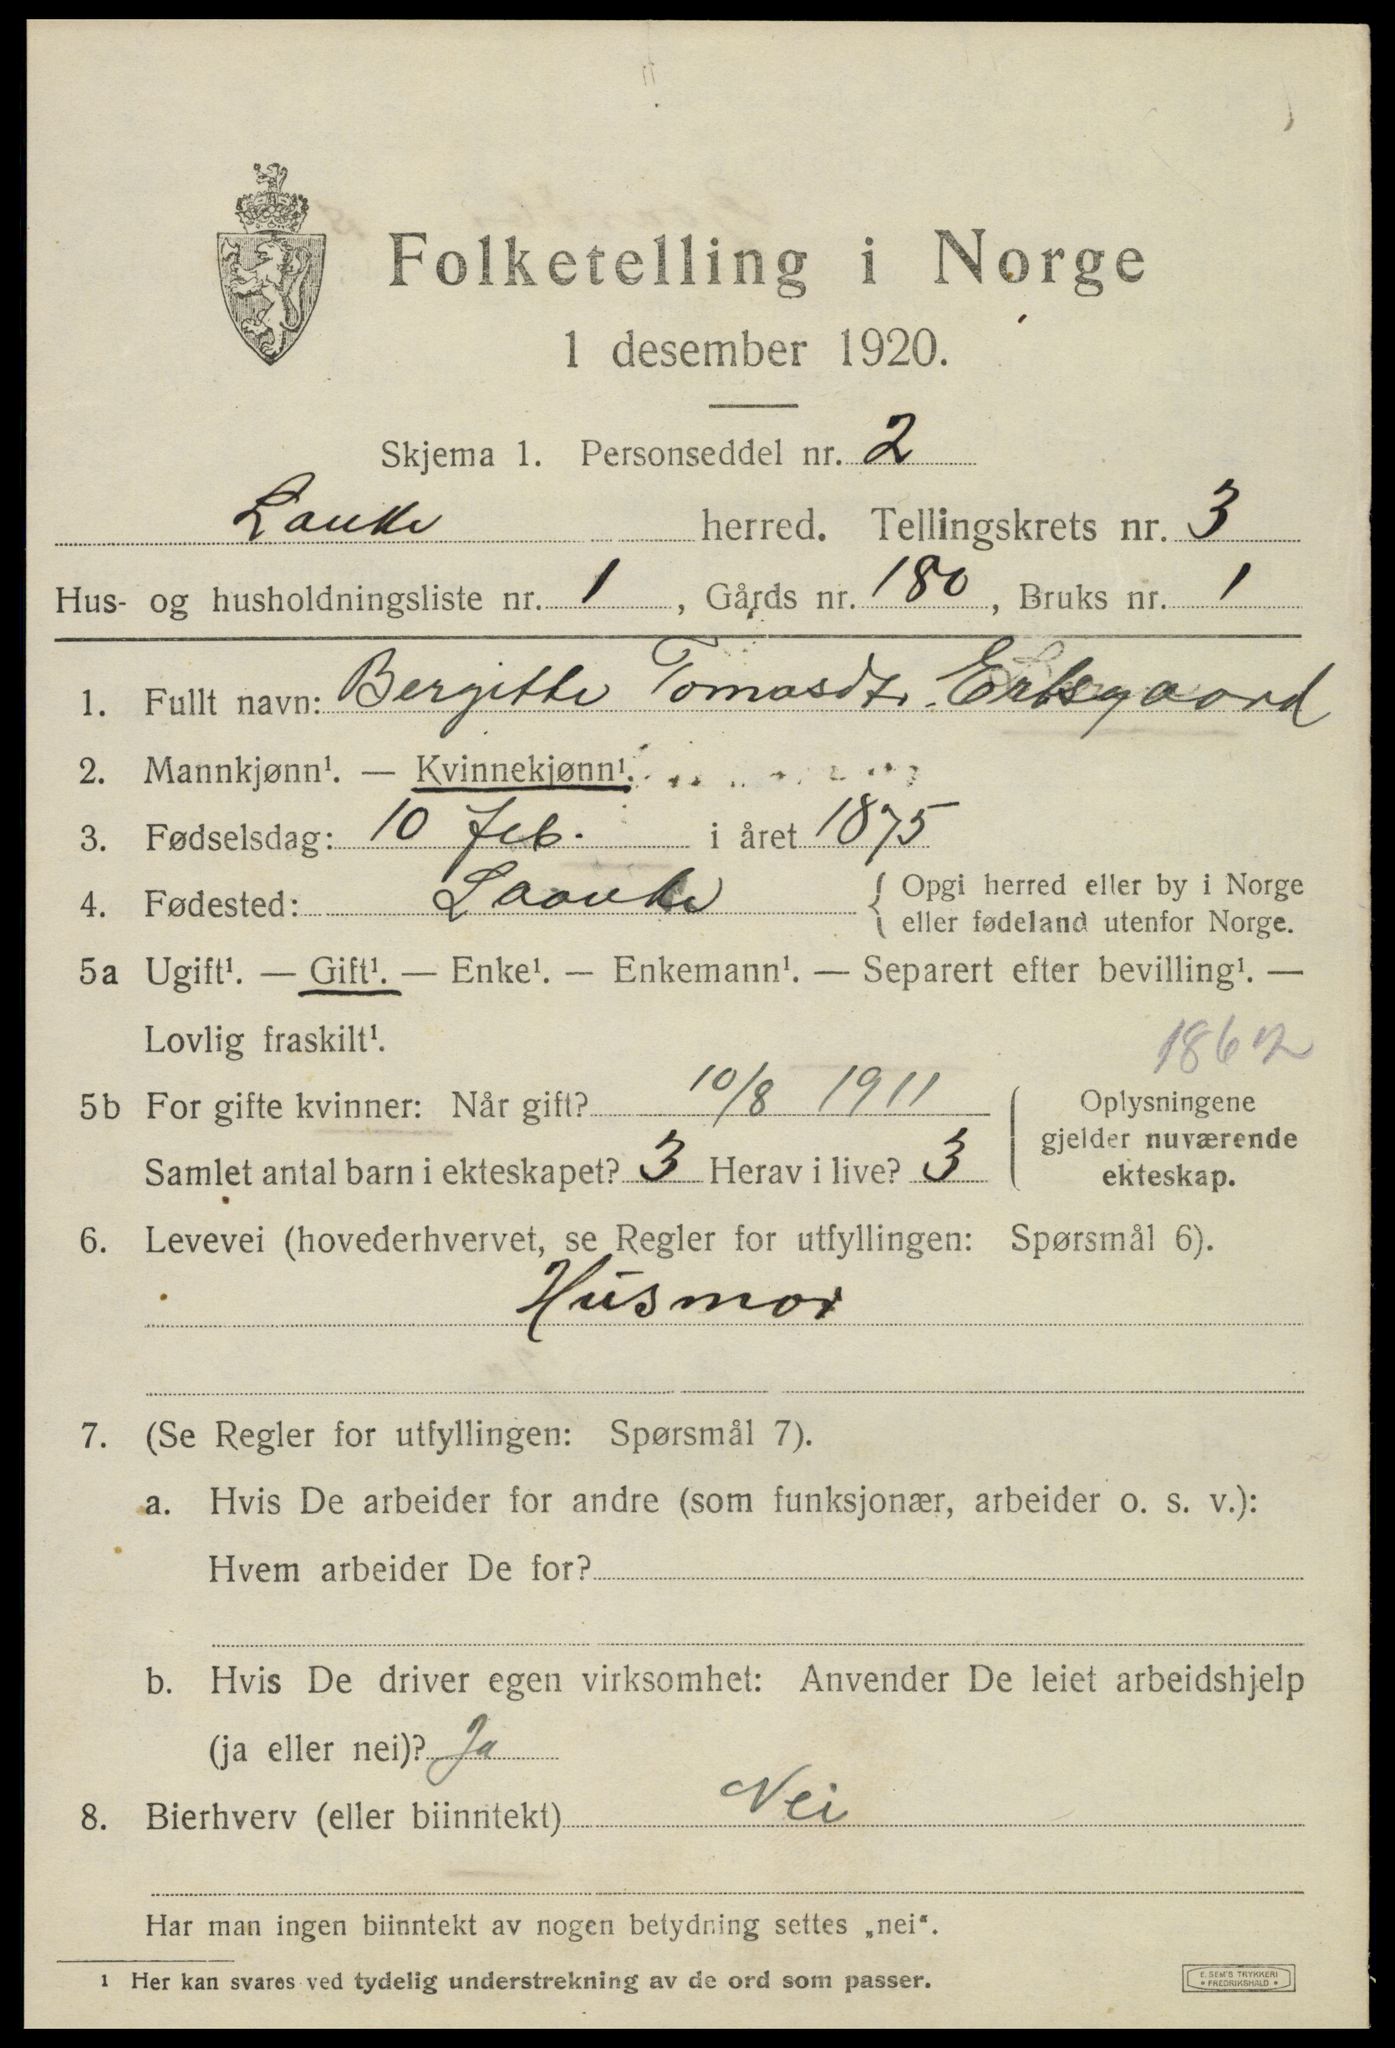 Folketelling i Norge
1 desember 1920.
Skjema 1. Personseddel nr. 2
herred. Tellingskrets nr. 3
Hus- og husholdningsliste nr. 1, Gårds nr. 180, Bruks nr. 1
1. Fullt navn: Bergitte Tomasdtr. Ertsgaard
2. Mannkjønn¹. — Kvinnekjønn¹.
3. Fødselsdag: 10 feb. i året 1875
4. Fødested: { Opgi herred eller by i Norge
eller fødeland utenfor Norge.
5a Ugift¹. — Gift¹. — Enke¹. — Enkemann¹. — Separert efter bevilling¹. —
Lovlig fraskilt¹.
1862
5b For gifte kvinner: Når gift? 10/8 1911
Samlet antal barn i ekteskapet? 3 Herav i live? 3
Oplysningene
gjelder nuværende
ekteskap.
6. Levevei (hovederhvervet, se Regler for utfyllingen: Spørsmål 6).
Husmor
7. (Se Regler for utfyllingen: Spørsmål 7).
a. Hvis De arbeider for andre (som funksjonær, arbeider o. s. v.):
Hvem arbeider De for?
b. Hvis De driver egen virksomhet: Anvender De leiet arbeidshjelp
(ja eller nei)? Ja
8. Bierhverv (eller biinntekt) Nei
Har man ingen biinntekt av nogen betydning settes „nei“.
¹ Her kan svares ved tydelig understrekning av de ord som passer.
E. SEM'S TRYKKERI
• FREDRIKSHALD •